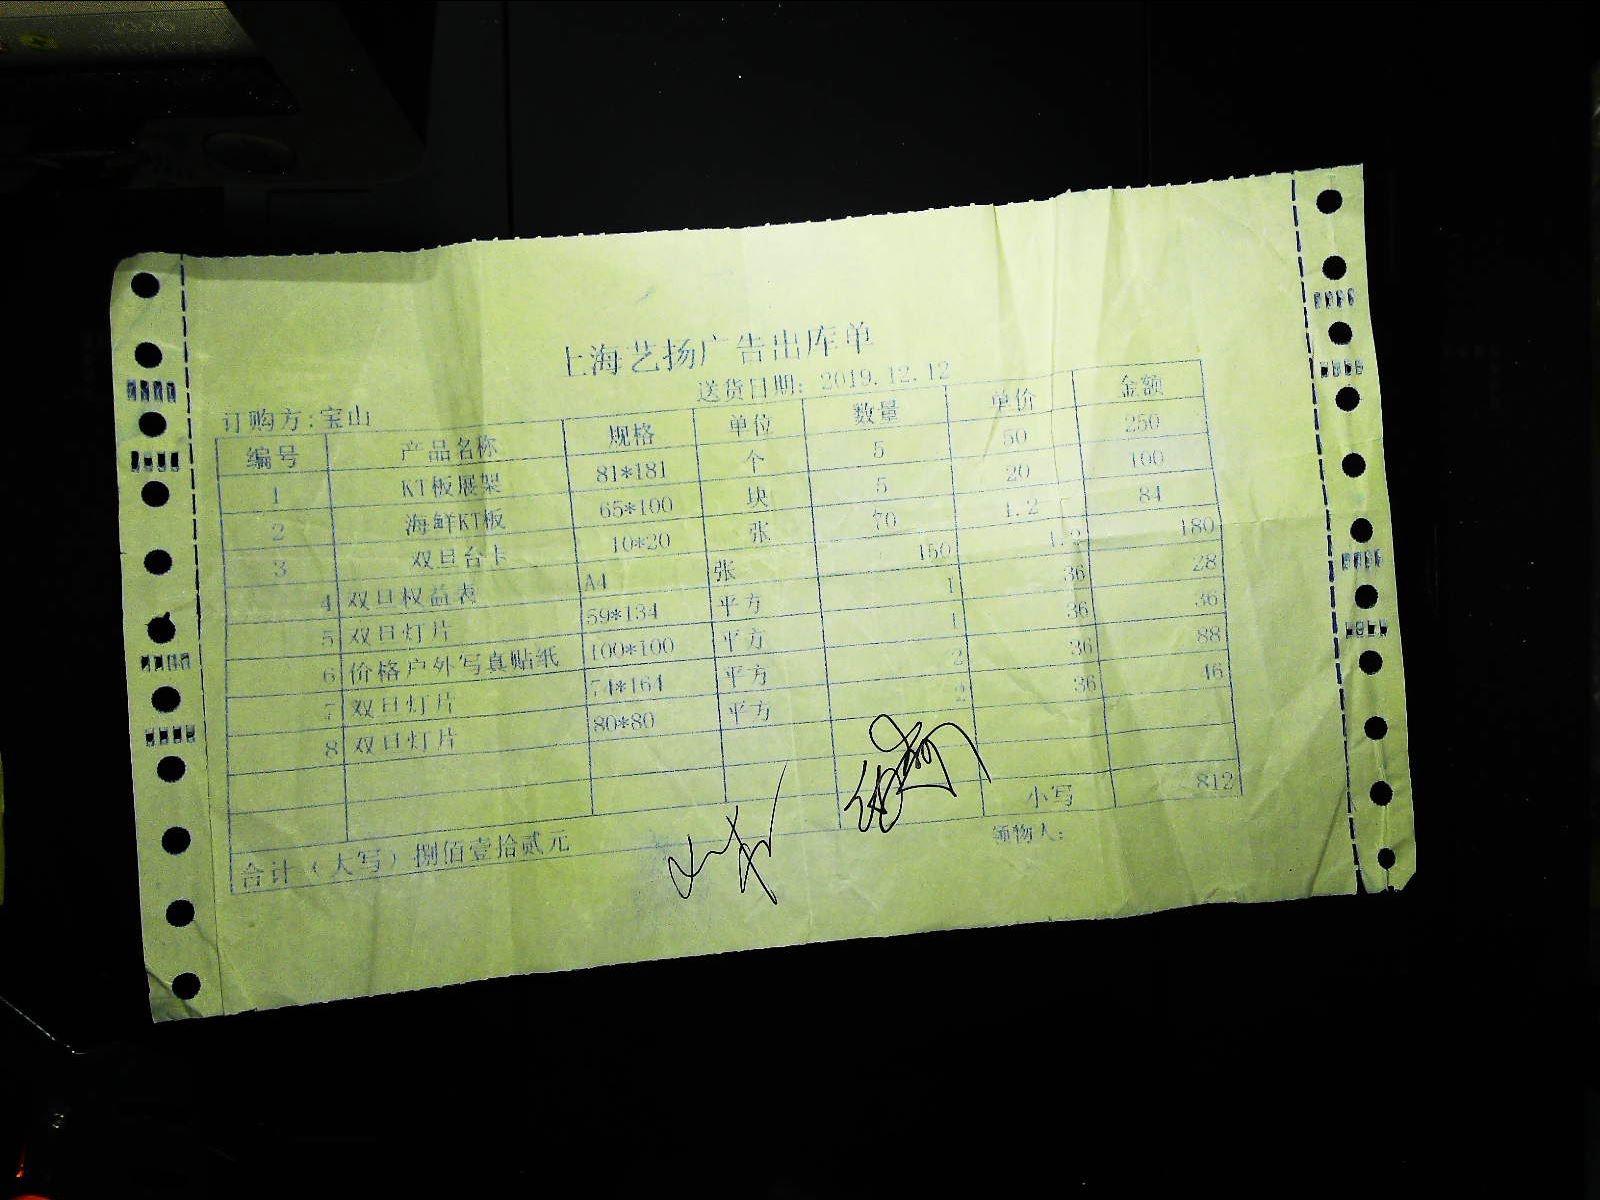 上海艺扬广告出库单
送货日期: 2019.12.12
订购方:宝山
编号 产品名称 规格 单位 数量 单价 金额
1 KT板展架 81*181 个 5 50 250
2 海鲜KT板 65*100 块 5 20 100
3 双旦台卡 10*20 张 70 1.2 84
4 双旦权益表 A4 张 150 1.2 180
5 双旦灯片 59*134 平方 1 36 28
6 价格户外写真贴纸 100*100 平方 1 36 36
7 双旦灯片 74*164 平方 2 36 88
8 双旦灯片 80*80 平方 2 36 46
合计(大写)捌佰壹拾贰元 小写 812
领物人: